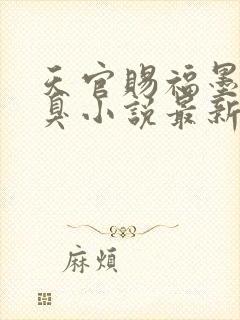 天官賜福墨
臭小說最新
麻煩